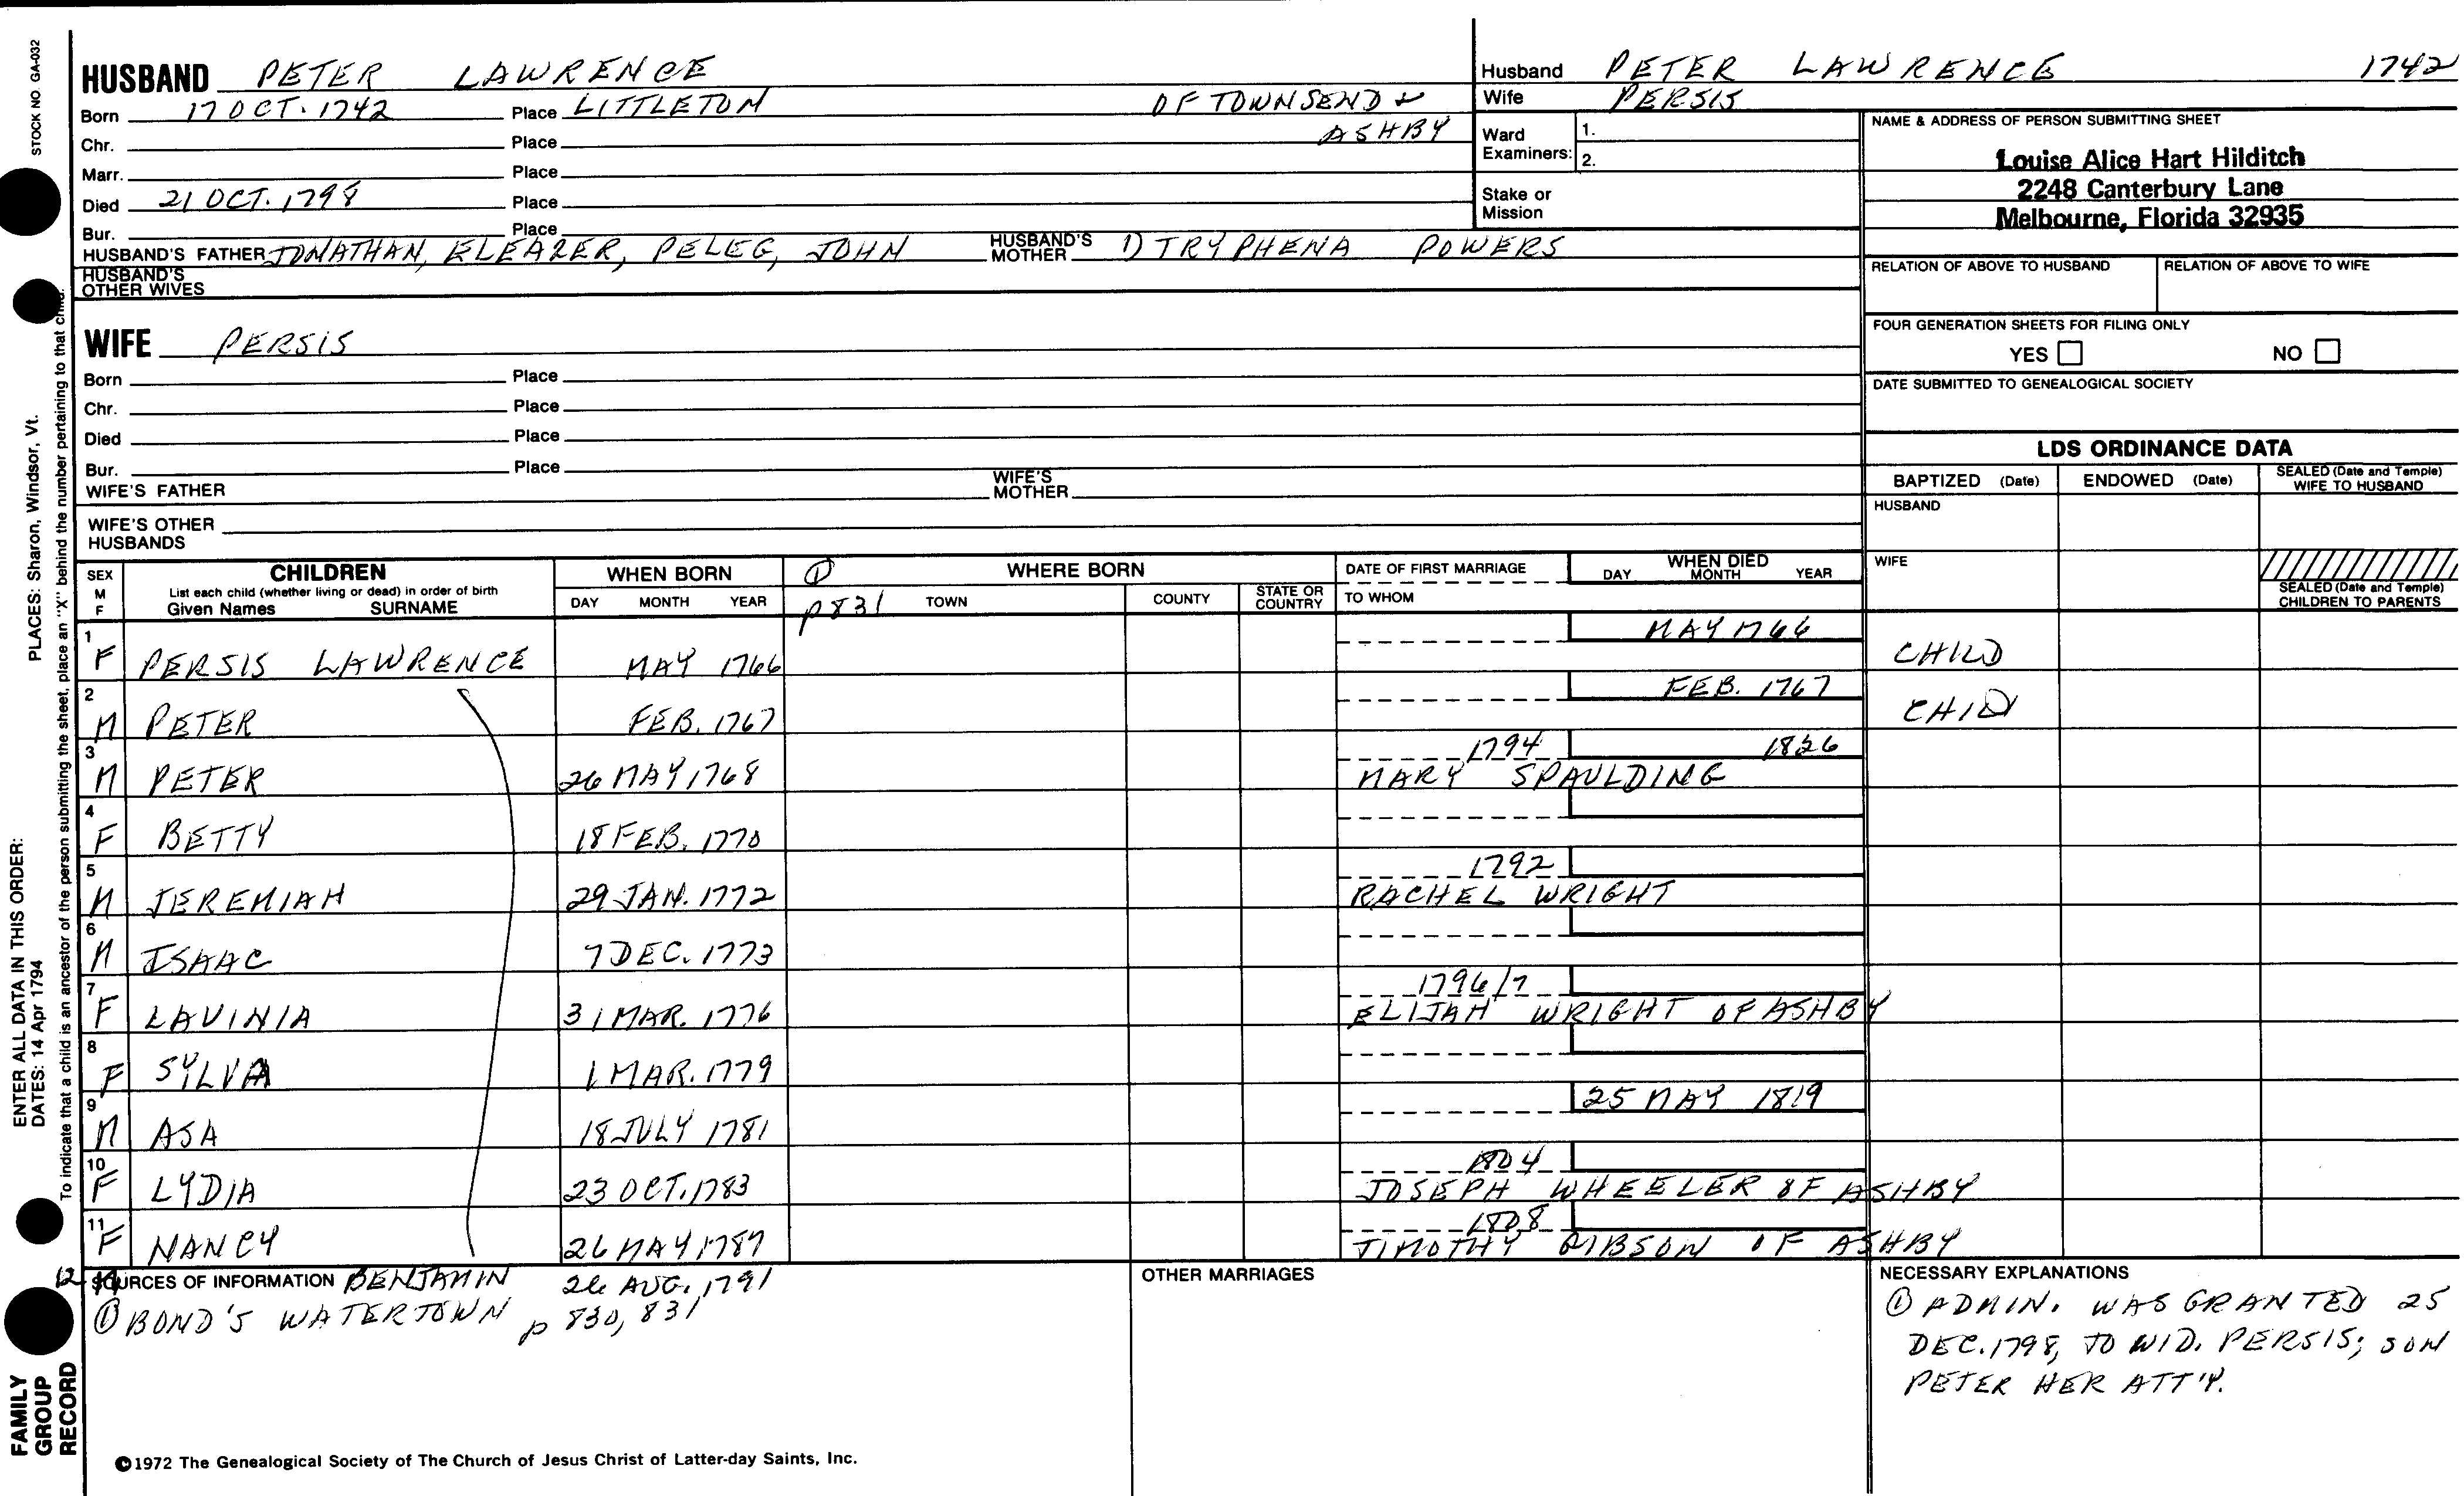 STOCK NO. GA-032
HUSBAND PETER LAWRENCE
Born 17 OCT. 1742 Place LITTLETON OF TOWNSEND &
Chr. Place ASHBY
Marr. Place
Died 21 OCT. 1798 Place
Bur. Place
HUSBAND'S FATHER JONATHAN, ELEAZER, PELEG, JOHN HUSBAND'S MOTHER 1) TRYPHENA POWERS
HUSBAND'S
OTHER WIVES
WIFE PERSIS
Born Place
Chr. Place
Died Place
Bur. Place
WIFE'S FATHER WIFE'S MOTHER
WIFE'S OTHER
HUSBANDS
Husband PETER LAWRENCE 1742
Wife PERSIS
Ward
Examiners: 1.
2.
Stake or
Mission
NAME & ADDRESS OF PERSON SUBMITTING SHEET
Louise Alice Hart Hilditch
2248 Canterbury Lane
Melbourne, Florida 32935
RELATION OF ABOVE TO HUSBAND RELATION OF ABOVE TO WIFE
FOUR GENERATION SHEETS FOR FILING ONLY
YES NO
DATE SUBMITTED TO GENEALOGICAL SOCIETY
LDS ORDINANCE DATA
BAPTIZED (Date) ENDOWED (Date) SEALED (Date and Temple)
WIFE TO HUSBAND
HUSBAND
WIFE
SEALED (Date and Temple)
CHILDREN TO PARENTS
SEX
M
F
CHILDREN
List each child (whether living or dead) in order of birth
Given Names SURNAME
WHEN BORN
DAY MONTH YEAR
① WHERE BORN
p831 TOWN COUNTY STATE OR COUNTRY
DATE OF FIRST MARRIAGE
TO WHOM
WHEN DIED
DAY MONTH YEAR
1 MAY 1766
F PERSIS LAWRENCE MAY 1766 CHILD
2 FEB. 1767
M PETER FEB. 1767 CHID
3 1794 1826
M PETER 26 MAY 1768 MARY SPAULDING
4
F BETTY 18 FEB. 1770
5 1792
M JEREMIAH 29 JAN. 1772 RACHEL WRIGHT
6
M ISAAC 7 DEC. 1773
7 1796/7
F LAVINIA 31 MAR. 1776 ELIJAH WRIGHT OF ASHBY
8
F SYLVA 1 MAR. 1779
9 25 MAY 1819
M ASA 18 JULY 1781
10 1804
F LYDIA 23 OCT. 1783 JOSEPH WHEELER OF ASHBY
11 1808
F NANCY 26 MAY 1787 TIMOTHY GIBSON OF ASHBY
12 M SOURCES OF INFORMATION BENJAMIN 26 AUG. 1791
① BOND'S WATERTOWN p 830, 831
OTHER MARRIAGES
NECESSARY EXPLANATIONS
① ADMIN. WAS GRANTED 25
DEC. 1798, TO WID. PERSIS; SON
PETER HER ATT'Y.
©1972 The Genealogical Society of The Church of Jesus Christ of Latter-day Saints, Inc.
ENTER ALL DATA IN THIS ORDER:
DATES: 14 Apr 1794
PLACES: Sharon, Windsor, Vt.
To indicate that a child is an ancestor of the person submitting the sheet, place an "X" behind the number pertaining to that child.
FAMILY
GROUP
RECORD